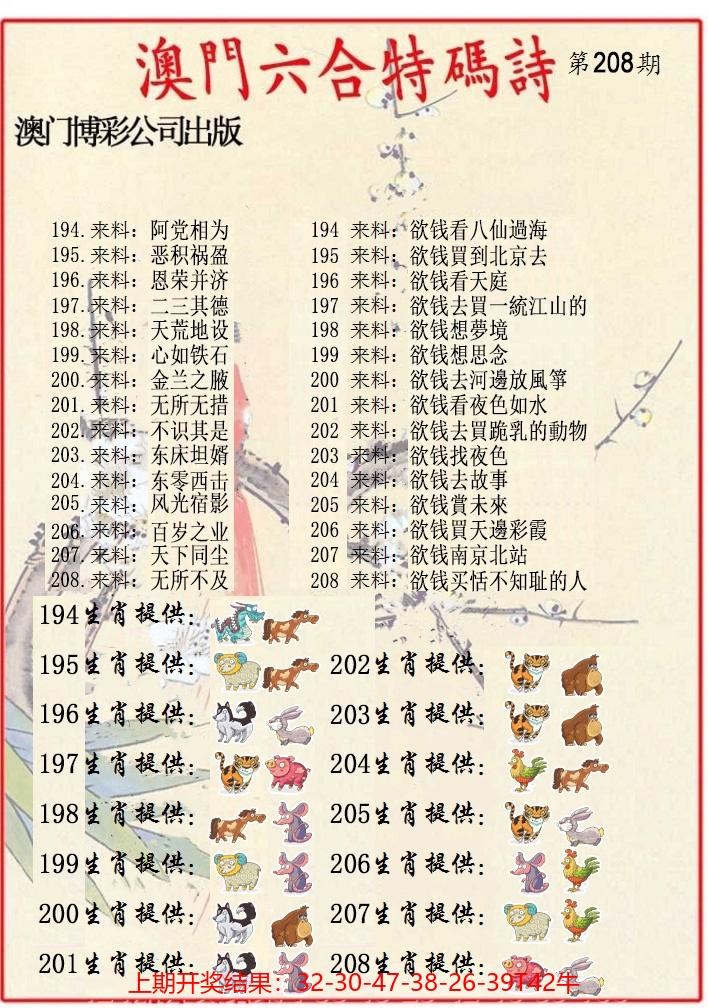 澳門六合特碼詩 第208期
澳门博彩公司出版
194.来料：阿党相为
195.来料：恶积祸盈
196.来料：恩荣并济
197.来料：二三其德
198.来料：天荒地设
199.来料：心如铁石
200.来料：金兰之腋
201.来料：无所无措
202.来料：不识其是
203.来料：东床坦婿
204.来料：东零西击
205.来料：风光宿影
206.来料：百岁之业
207.来料：天下同尘
208.来料：无所不及
194 来料：欲钱看八仙過海
195 来料：欲钱買到北京去
196 来料：欲钱看天庭
197 来料：欲钱去買一統江山的
198 来料：欲钱想夢境
199 来料：欲钱想思念
200 来料：欲钱去河邊放風箏
201 来料：欲钱看夜色如水
202 来料：欲钱去買跪乳的動物
203 来料：欲钱找夜色
204 来料：欲钱去故事
205 来料：欲钱賞未來
206 来料：欲钱買天邊彩霞
207 来料：欲钱南京北站
208 来料：欲钱买恬不知耻的人
194生肖提供：
195生肖提供：
196生肖提供：
197生肖提供：
198生肖提供：
199生肖提供：
200生肖提供：
201生肖提供：
202生肖提供：
203生肖提供：
204生肖提供：
205生肖提供：
206生肖提供：
207生肖提供：
208生肖提供：
上期开奖结果：32-30-47-38-26-39T42牛